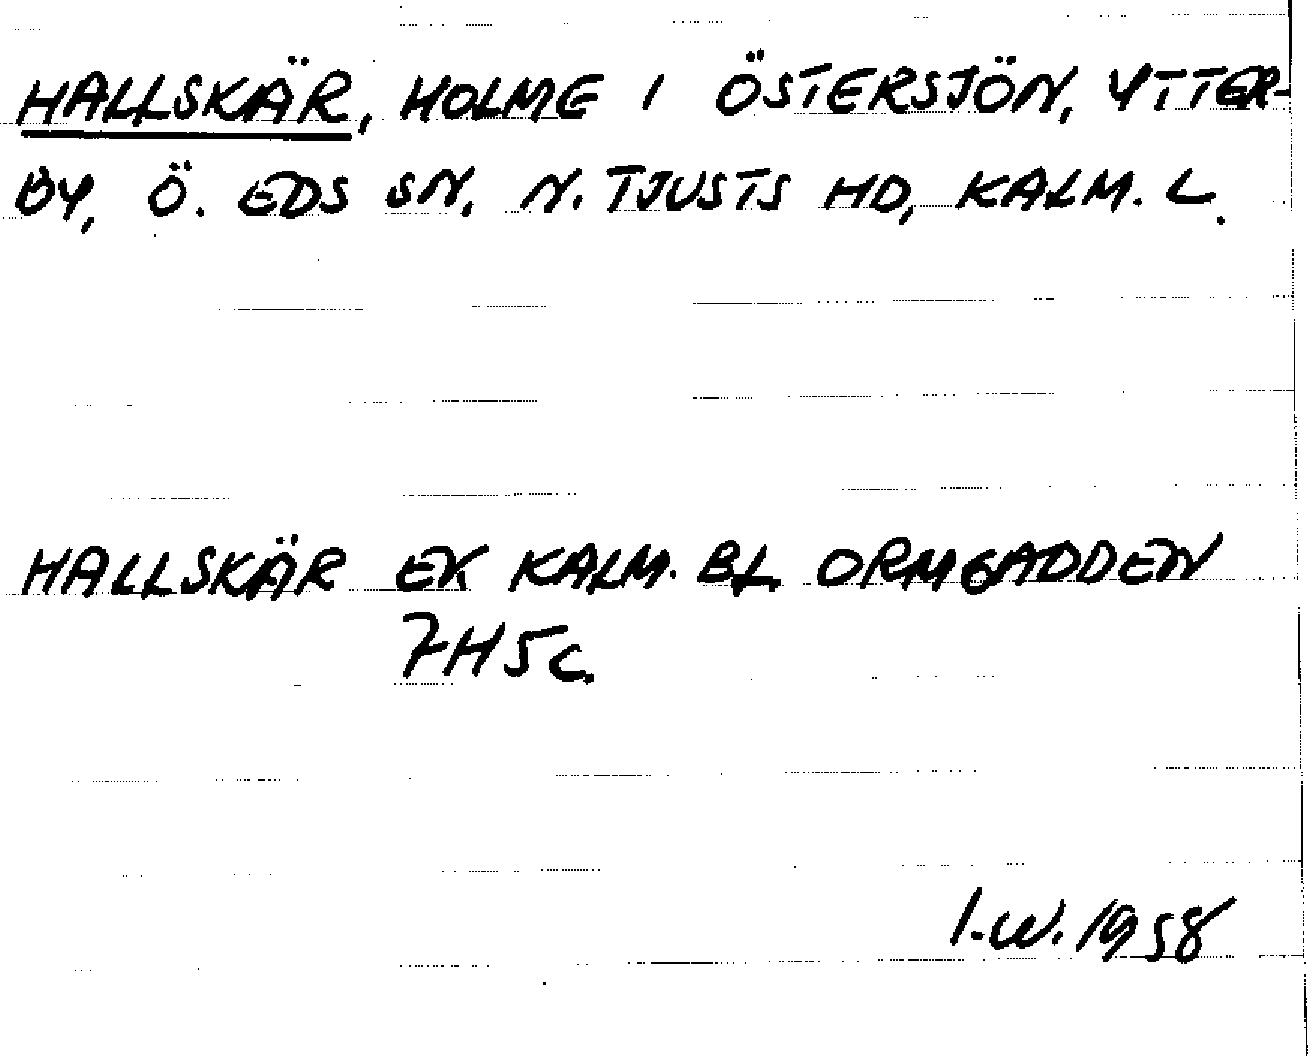 HALLSKÄR, HOLME I ÖSTERSJÖN, YTTER-
BY, Ö. EDS SN, N. TJUSTS HD, KALM. L.
HALLSKÄR EK KALM. BL ORMGADDEN
7H5c.
I.W. 1958